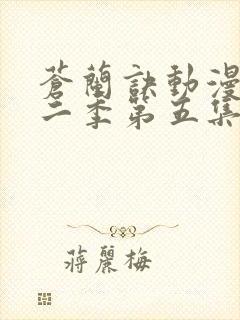 蒼蘭訣動漫
二季第五集
蔣麗梅